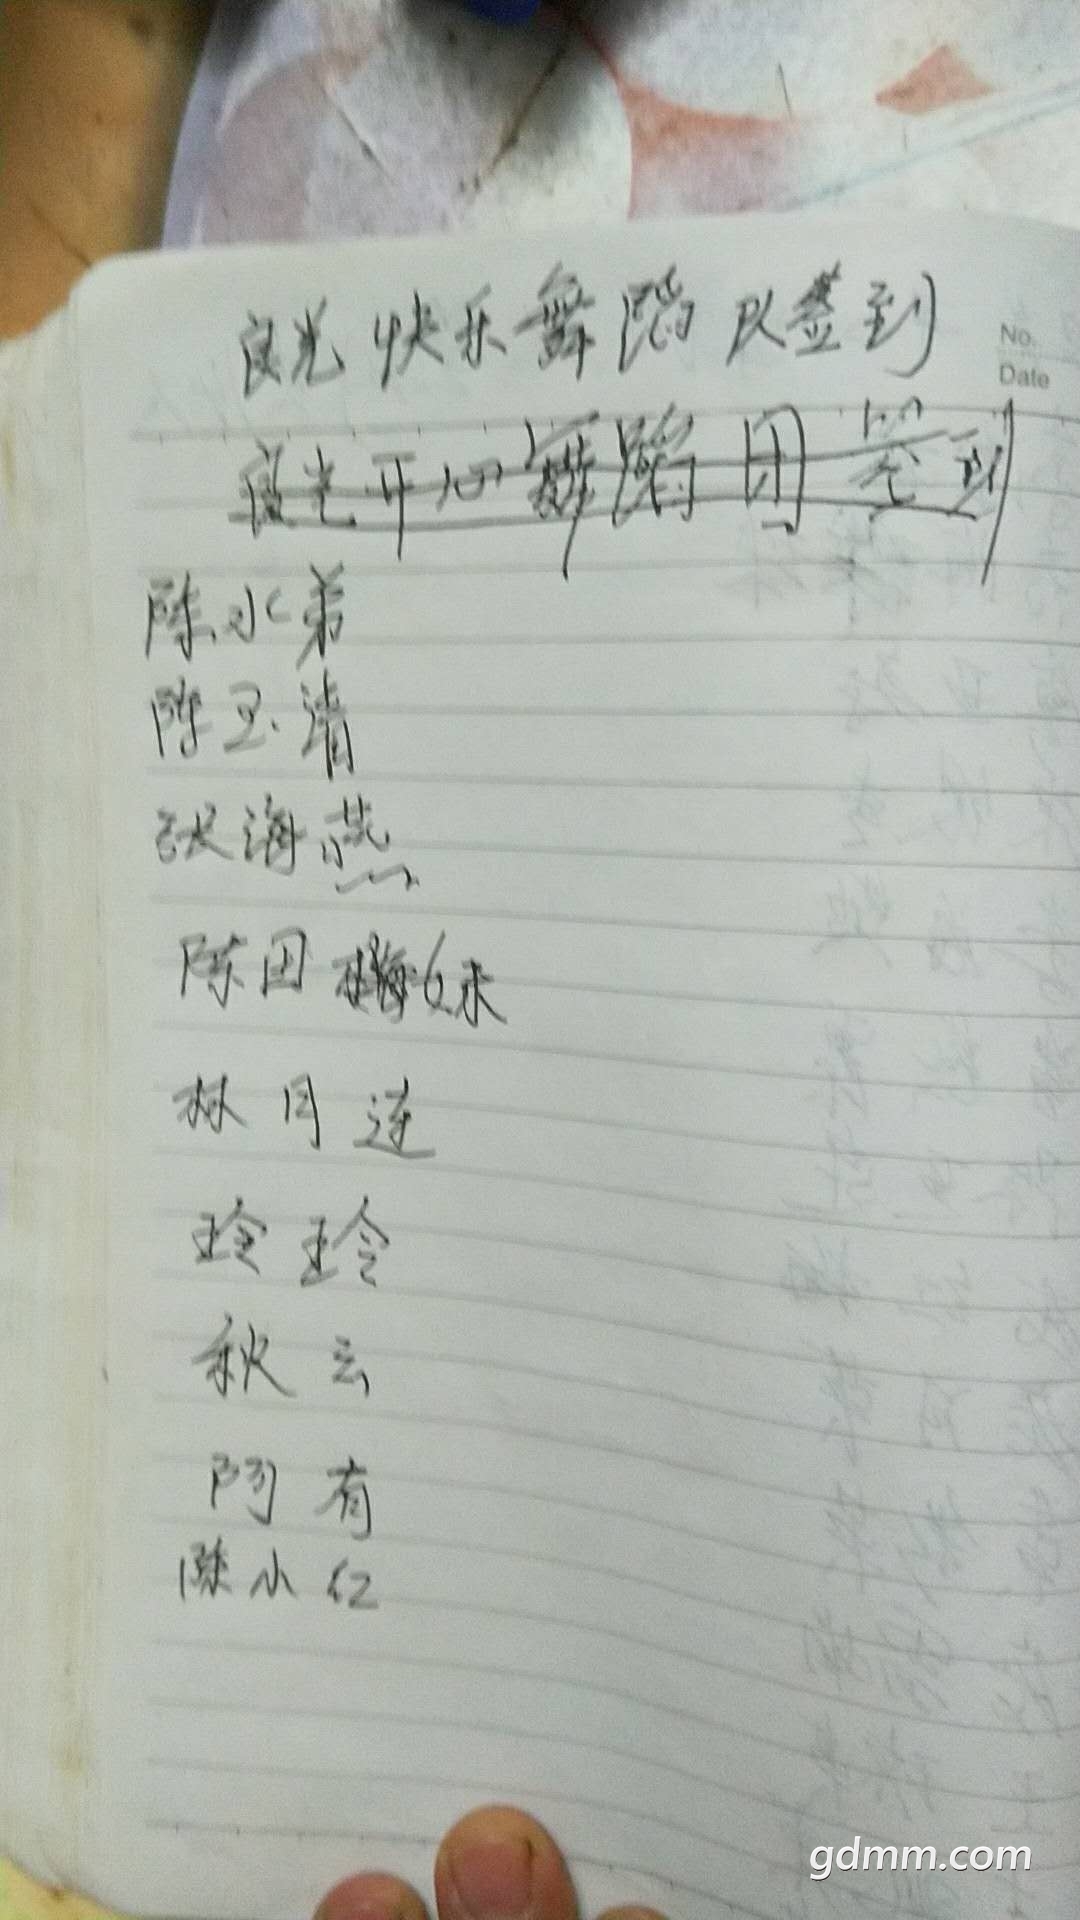 良光快乐舞蹈队签到
No.
Date
良光开心舞蹈团签到
陈水弟
陈玉清
张海燕
陈田妹
林月连
玲玲
秋云
阿有
陈小仁
gdmm.com